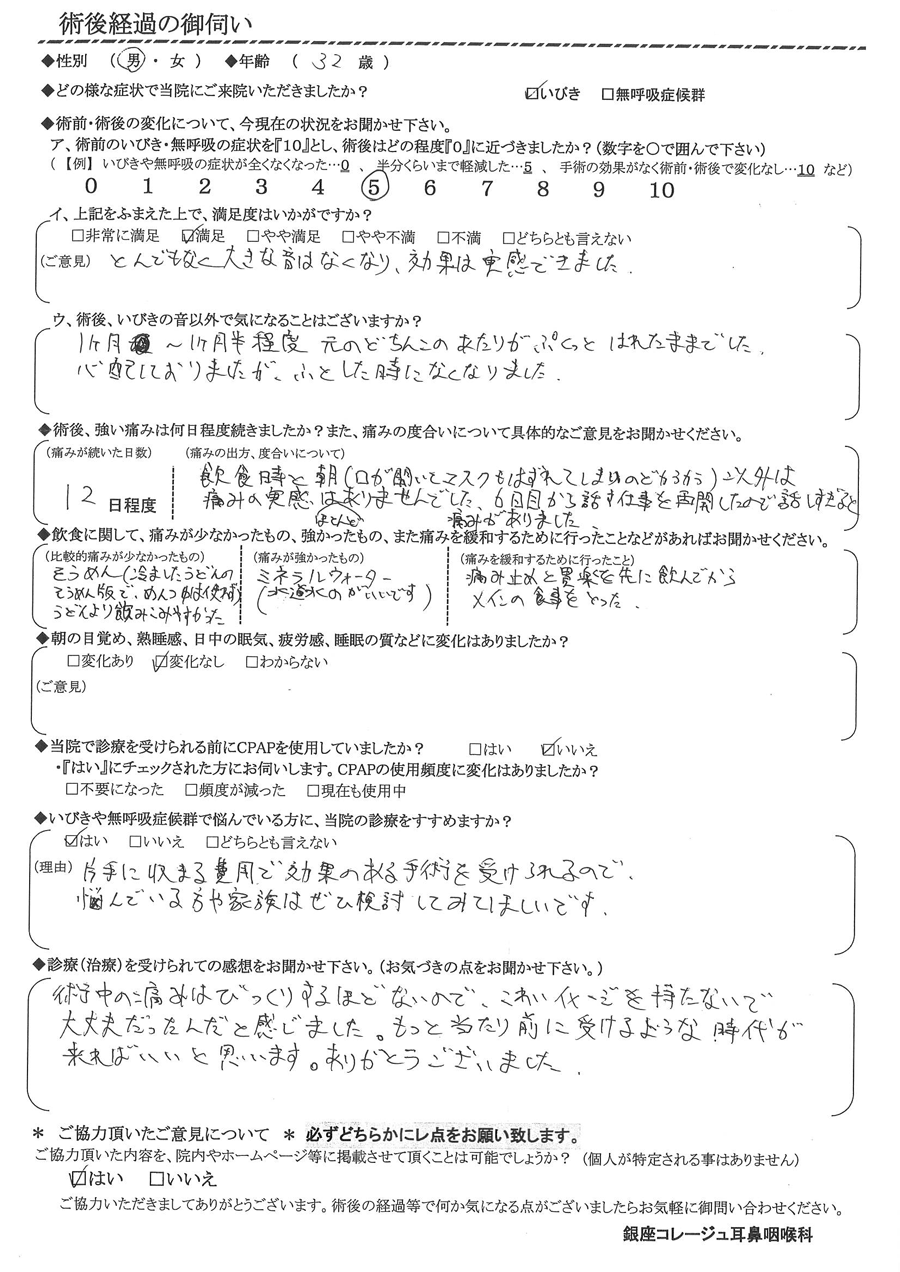 術後経過の御伺い
◆性別 （ 男 ・ 女 ） ◆年齢 （ 32 歳 ）
◆どの様な症状で当院にご来院いただきましたか？ ☑いびき □無呼吸症候群
◆術前・術後の変化について、今現在の状況をお聞かせ下さい。
ア、術前のいびき・無呼吸の症状を『10』とし、術後はどの程度『0』に近づきましたか？（数字を○で囲んで下さい）
（【例】いびきや無呼吸の症状が全くなくなった…0 、 半分くらいまで軽減した…5 、 手術の効果がなく術前・術後で変化なし…10 など）
0 1 2 3 4 5 6 7 8 9 10
イ、上記をふまえた上で、満足度はいかがですか？
□非常に満足 ☑満足 □やや満足 □やや不満 □不満 □どちらとも言えない
（ご意見） とんでもなく大きな音はなくなり、効果は実感できました．
ウ、術後、いびきの音以外で気になることはございますか？
1ヶ月 ～1ヶ月半程度 元のどちんこのあたりがぷくっと はれたままでした．
心配しておりましたが、ふとした時になくなりました．
◆術後、強い痛みは何日程度続きましたか？また、痛みの度合いについて具体的なご意見をお聞かせください。
（痛みが続いた日数） （痛みの出方、度合いについて）
飲食時と朝（口が開いてマスクもはずれてしまいのどカラカラ）以外は
12 日程度 痛みの実感はありませんでした、6日目から話す仕事を再開したので話しすぎると
ほとんど 痛みがありました
◆飲食に関して、痛みが少なかったもの、強かったもの、また痛みを緩和するために行ったことなどがあればお聞かせください。
（比較的痛みが少なかったもの） （痛みが強かったもの） （痛みを緩和するために行ったこと）
そうめん（冷ましたうどんの ミネラルウォーター 痛み止めと胃薬を先に飲んでから
そうめん版で、めんつゆは使わず） （水道水のがいいです） メインの食事をとった．
うどんより飲みこみやすかった
◆朝の目覚め、熟睡感、日中の眠気、疲労感、睡眠の質などに変化はありましたか？
□変化あり ☑変化なし □わからない
（ご意見）
◆当院で診療を受けられる前にCPAPを使用していましたか？ □はい ☑いいえ
・『はい』にチェックされた方にお伺いします。CPAPの使用頻度に変化はありましたか？
□不要になった □頻度が減った □現在も使用中
◆いびきや無呼吸症候群で悩んでいる方に、当院の診療をすすめますか？
☑はい □いいえ □どちらとも言えない
（理由） 片手に収まる費用で効果のある手術を受けられるので、
悩んでいる方や家族はぜひ検討してみてほしいです．
◆診療（治療）を受けられての感想をお聞かせ下さい。（お気づきの点をお聞かせ下さい。）
術中の痛みはびっくりするほどないので、こわいイメージを持たないで
大丈夫だったんだと感じました。もっと当たり前に受けるような時代が
来ればいいと思います。ありがとうございました．
＊ ご協力頂いたご意見について ＊ 必ずどちらかにレ点をお願い致します。
ご協力頂いた内容を、院内やホームページ等に掲載させて頂くことは可能でしょうか？（個人が特定される事はありません）
☑はい □いいえ
ご協力いただきましてありがとうございます。術後の経過等で何か気になる点がございましたらお気軽に御問い合わせください。
銀座コレージュ耳鼻咽喉科